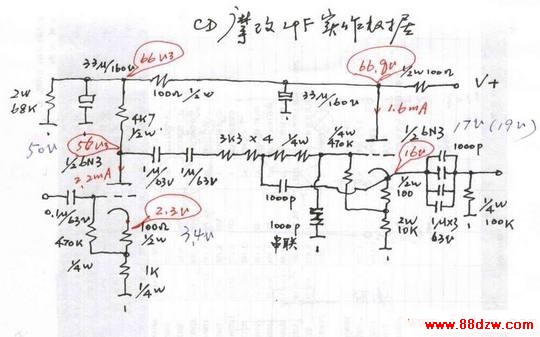 CD 摩改 LPF 实作数据
66V3
66.9V
33μ/160V
100Ω 1/2W
33μ/160V
1/2W 100Ω
V+
2W
68K
4K7
1/2W
1.6mA
17V (19V)
50V
56V3
1/2 6N3
2.2mA
1μ/63V
1μ/63V
3K3 × 4
1/4W
1/4W
470K
1/2 6N3
16V
1000P
0.1μ/63V
470K
1/4W
2.3V
100Ω
1/2W
3.4V
1K
1/4W
1000P
1000P
串联
1/2W
100
2W
10K
1μ×3
63V
1/4W
100K
www.88dzw.com